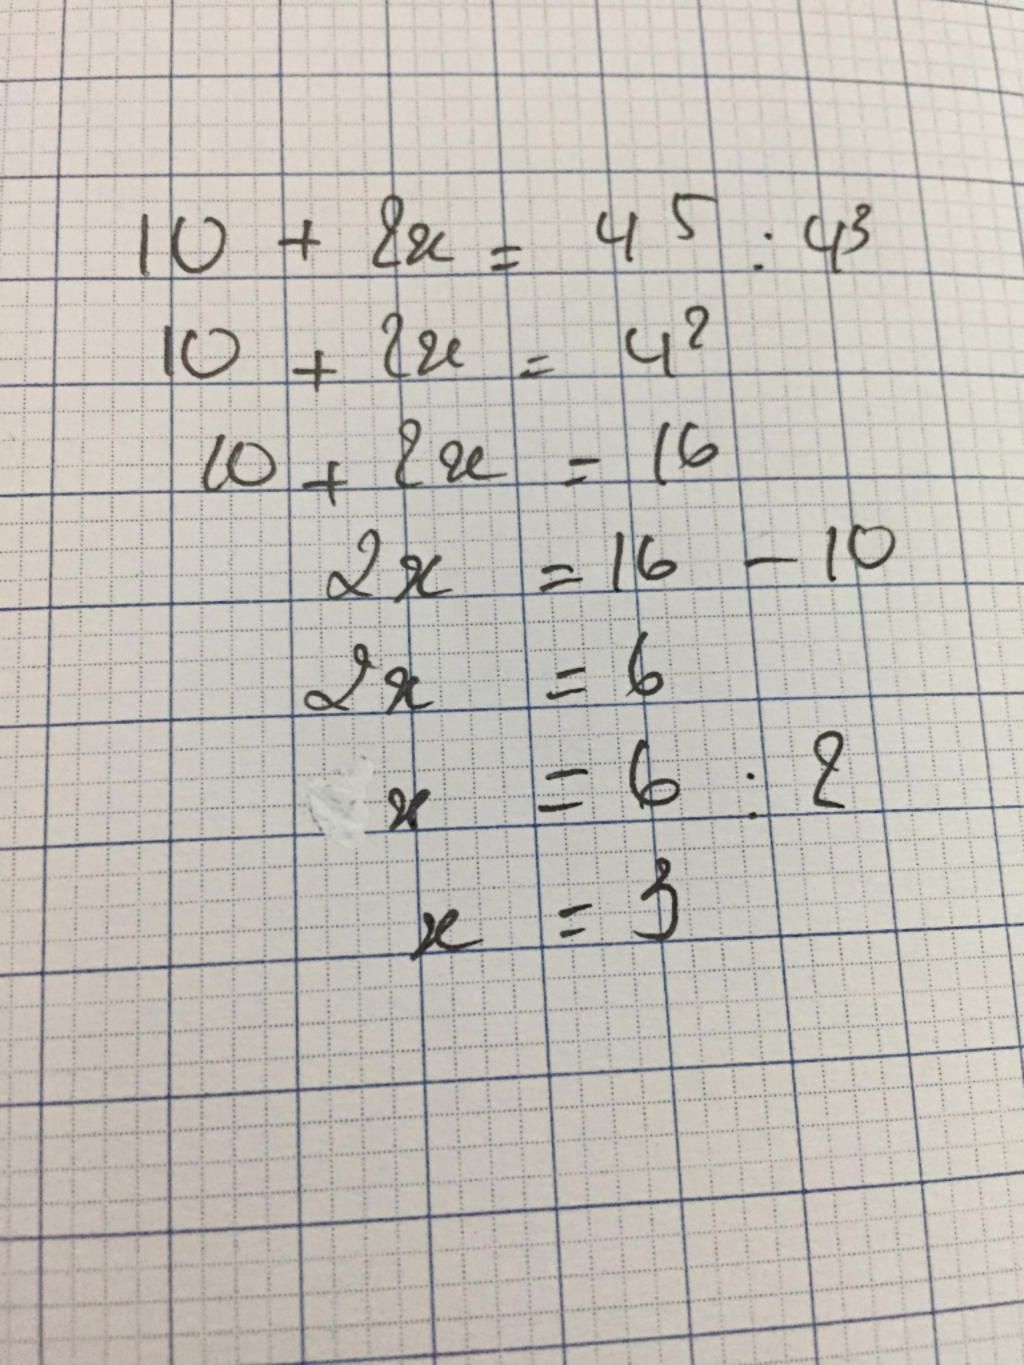 10 + 2x = 4⁵ : 4³
10 + 2x = 4²
10 + 2x = 16
2x = 16 - 10
2x = 6
x = 6 : 2
x = 3